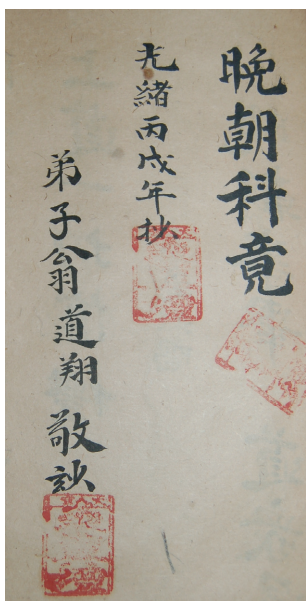 晩朝科竟
光緒丙戌年抄
弟子翁道翔敬訤